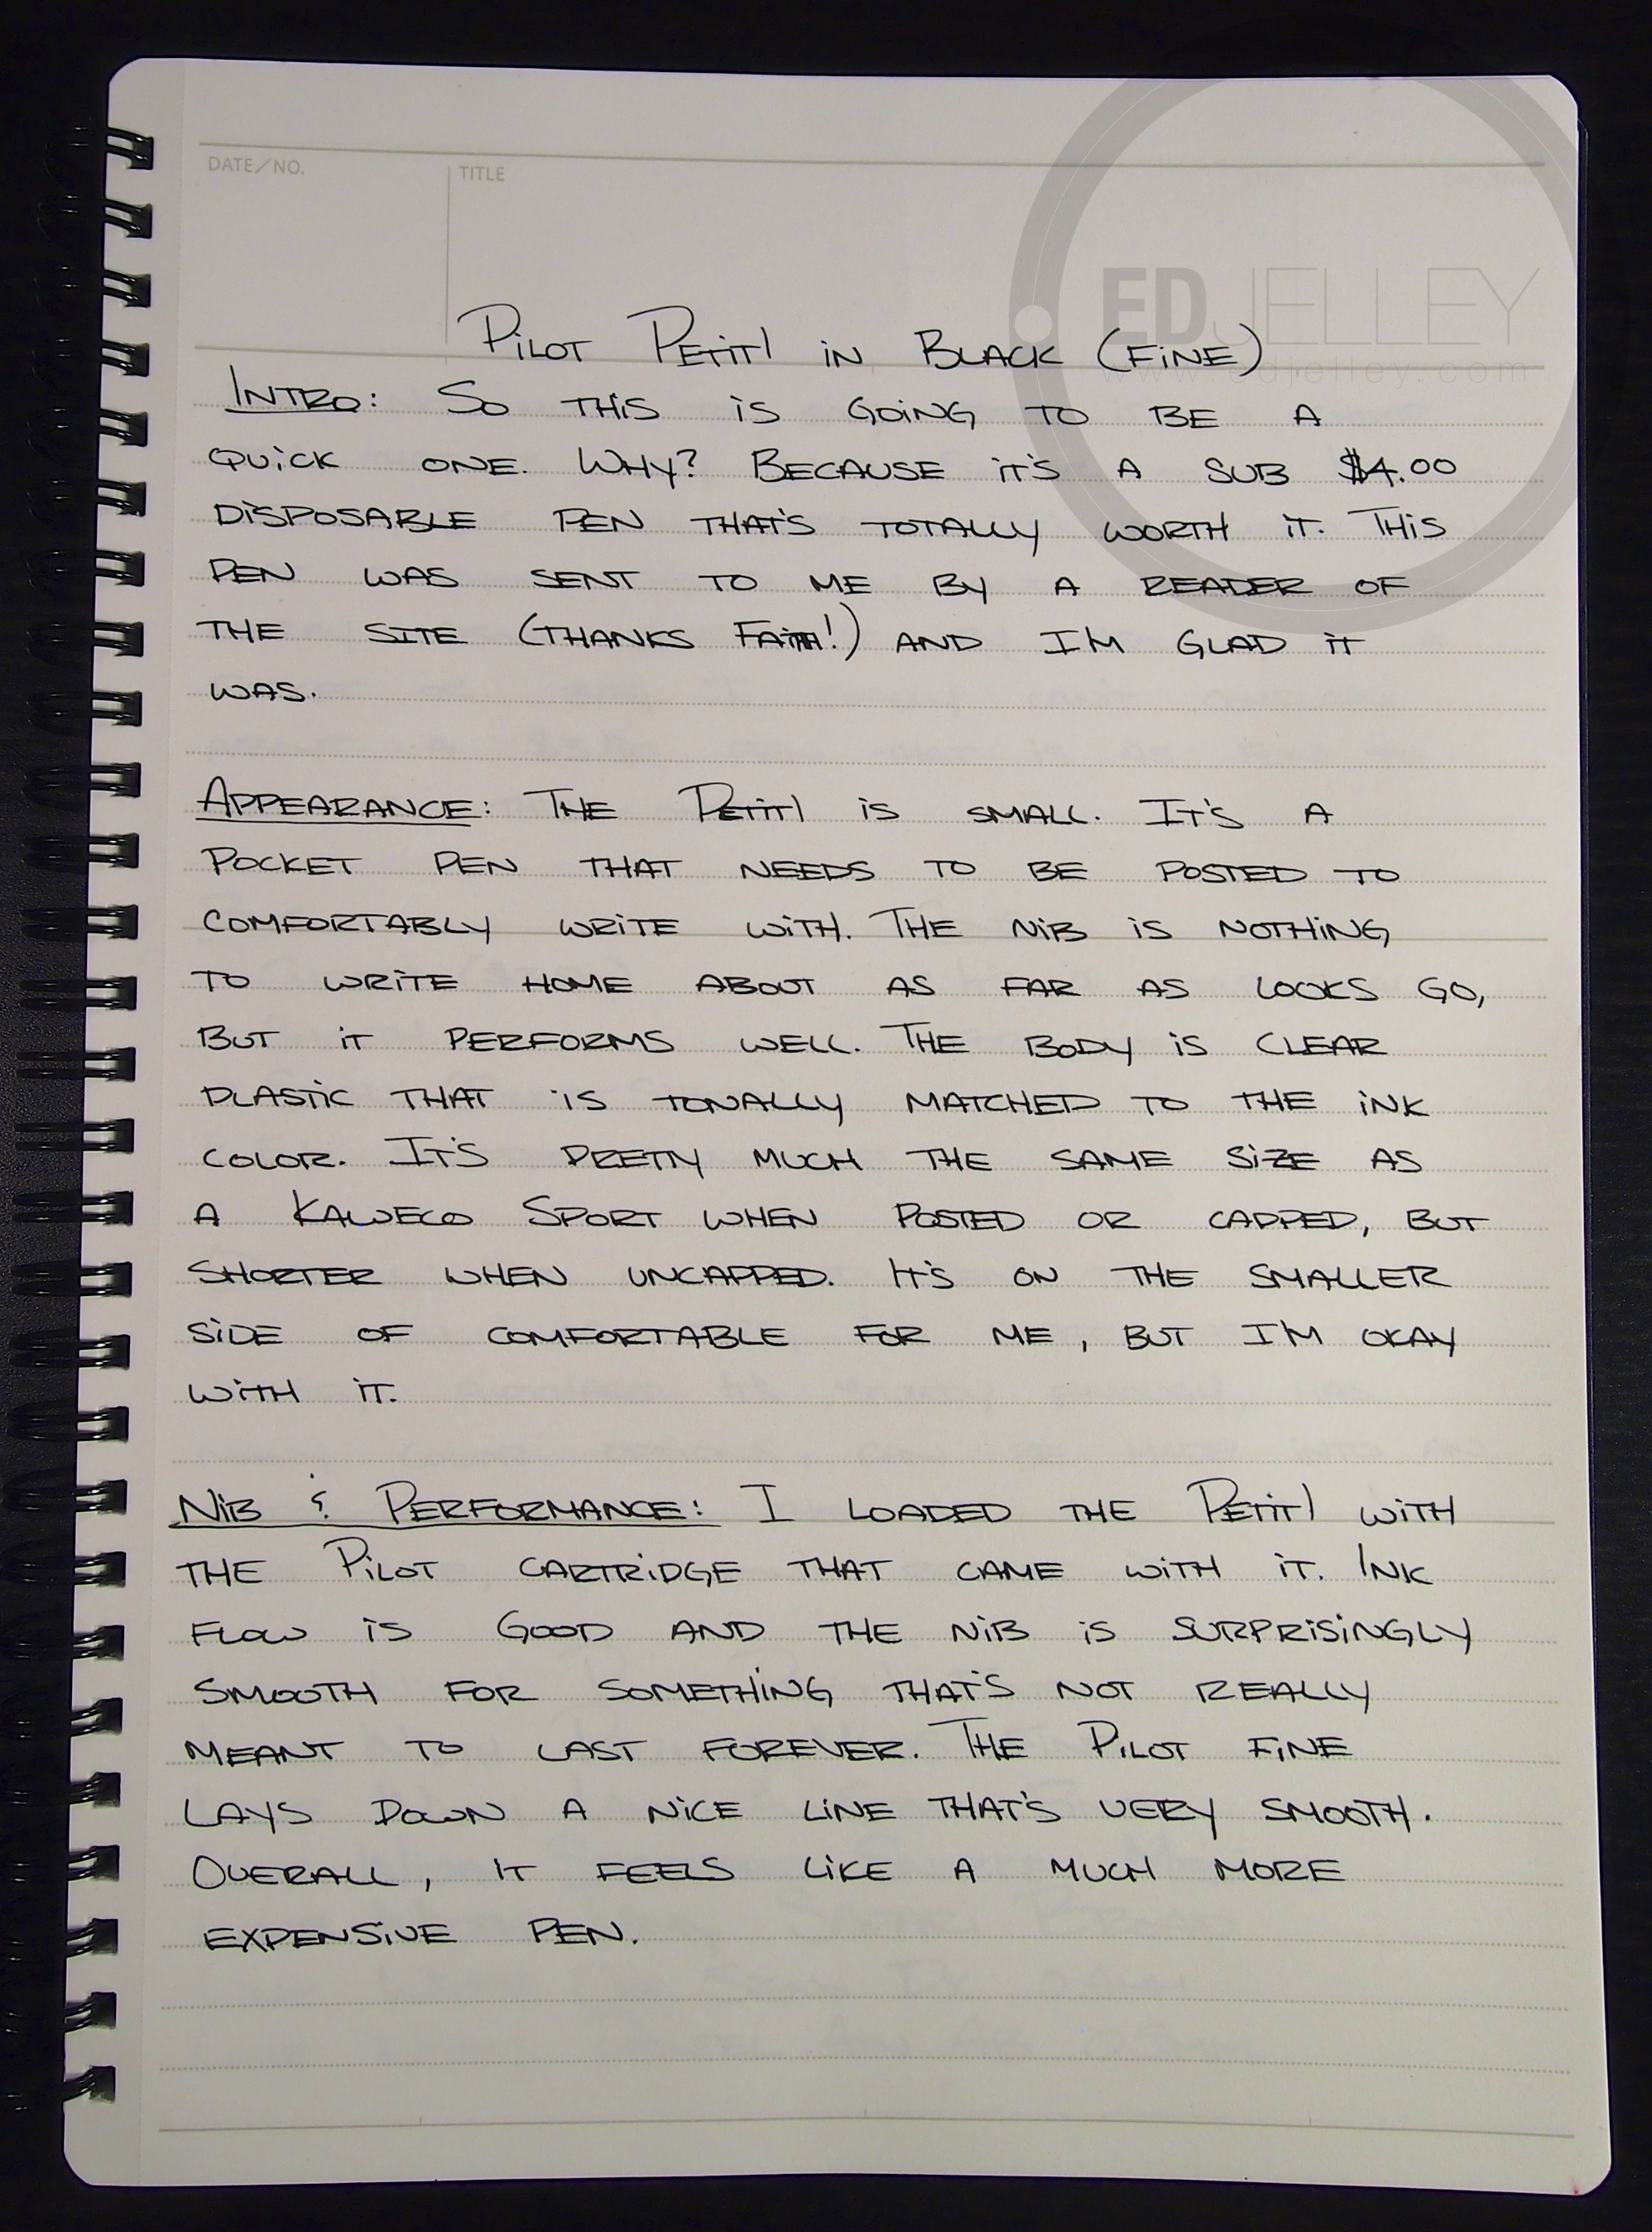 DATE/NO.
TITLE
EDJELLEY
www.edjelley.com
PILOT PETIT1 IN BLACK (FINE)
INTRO: SO THIS IS GOING TO BE A
QUICK ONE. WHY? BECAUSE IT'S A SUB $4.00
DISPOSABLE PEN THAT'S TOTALLY WORTH IT. THIS
PEN WAS SENT TO ME BY A READER OF
THE SITE (THANKS FAITH!) AND I'M GLAD IT
WAS.
APPEARANCE: THE PETIT1 IS SMALL. IT'S A
POCKET PEN THAT NEEDS TO BE POSTED TO
COMFORTABLY WRITE WITH. THE NIB IS NOTHING
TO WRITE HOME ABOUT AS FAR AS LOOKS GO,
BUT IT PERFORMS WELL. THE BODY IS CLEAR
PLASTIC THAT IS TONALLY MATCHED TO THE INK
COLOR. IT'S PRETTY MUCH THE SAME SIZE AS
A KAWECO SPORT WHEN POSTED OR CAPPED, BUT
SHORTER WHEN UNCAPPED. IT'S ON THE SMALLER
SIDE OF COMFORTABLE FOR ME, BUT I'M OKAY
WITH IT.
NIB & PERFORMANCE: I LOADED THE PETIT1 WITH
THE PILOT CARTRIDGE THAT CAME WITH IT. INK
FLOW IS GOOD AND THE NIB IS SURPRISINGLY
SMOOTH FOR SOMETHING THAT'S NOT REALLY
MEANT TO LAST FOREVER. THE PILOT FINE
LAYS DOWN A NICE LINE THAT'S VERY SMOOTH.
OVERALL, IT FEELS LIKE A MUCH MORE
EXPENSIVE PEN.